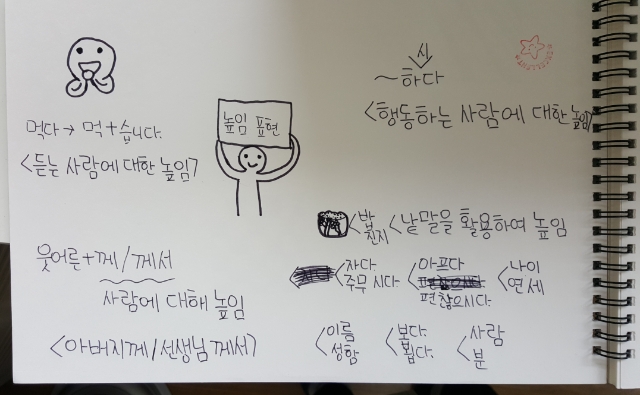 높임 표현
먹다 → 먹+습니다.
<듣는 사람에 대한 높임>
시
~하다
<행동하는 사람에 대한 높임>
밥
진지
<낱말을 활용하여 높임
자다
주무시다
아프다
편찮으시다.
나이
연세
이름
성함
보다
뵙다.
사람
분
웃어른+께/께서
사람에 대해 높임
<아버지께/선생님께서>